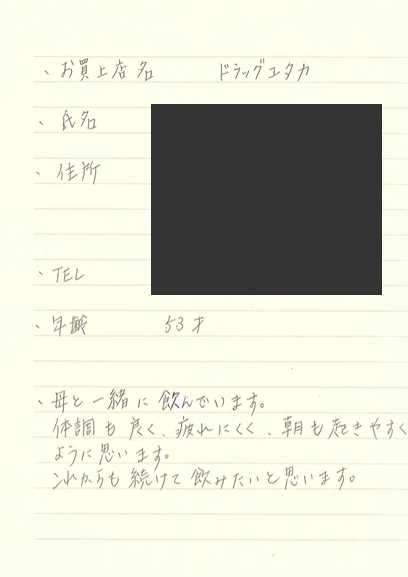 、お買上店名 ドラッグユタカ
、氏名
、住所
、TEL
、年齢 53才
、母と一緒に飲んでいます。
体調も良く、疲れにくく、朝も起きやすく
ように思います。
これからも続けて飲みたいと思います。